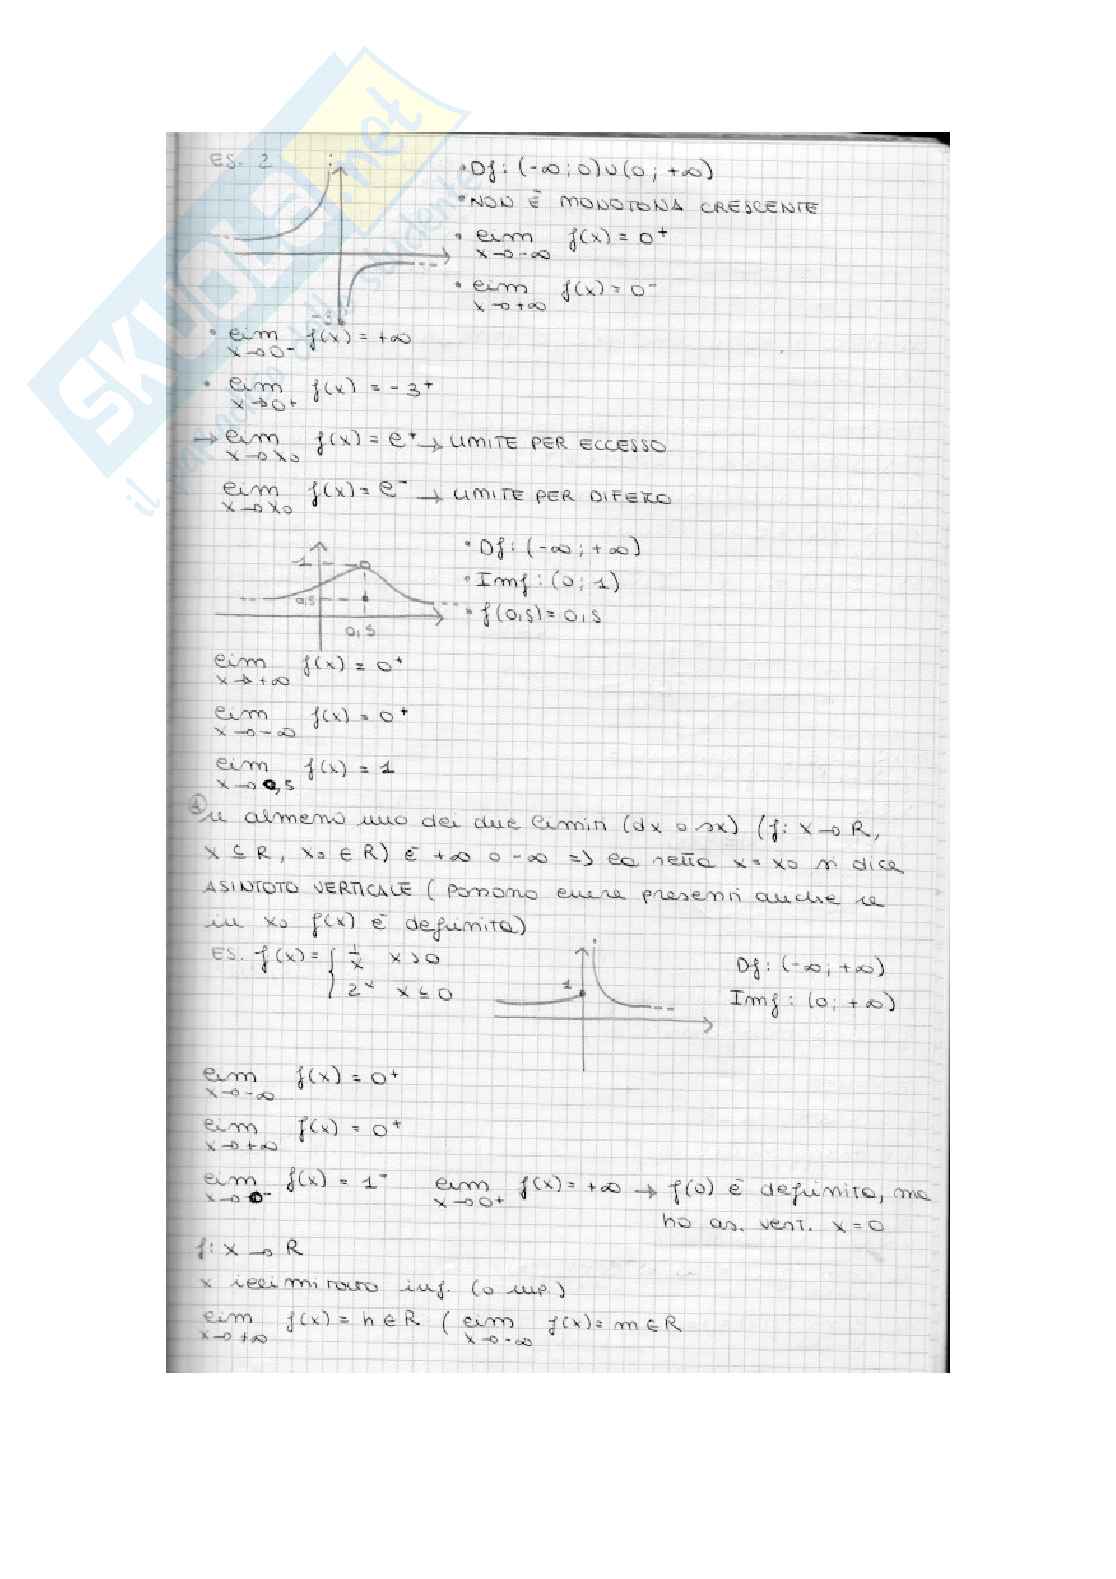 ES. 2
• Df: (-∞; 0)∪(0; +∞)
• NON È MONOTONA CRESCENTE
• lim f(x) = 0⁺
x→-∞
• lim f(x) = 0⁻
x→+∞
• lim f(x) = +∞
x→0⁻
• lim f(x) = -3⁺
x→0⁺
→ lim f(x) = l⁺ → LIMITE PER ECCESSO
x→x₀
lim f(x) = l⁻ → LIMITE PER DIFETTO
x→x₀
1
0,5
0,5
• Df: (-∞; +∞)
• Imf: (0; 1)
• f(0,5) = 0,5
lim f(x) = 0⁺
x→+∞
lim f(x) = 0⁺
x→-∞
lim f(x) = 1
x→0,5
① Se almeno uno dei due limiti (dx o sx) (f: x→R,
x ⊆ R, x₀ ∈ R) è +∞ o -∞ ⇒ la retta x = x₀ si dice
ASINTOTO VERTICALE (possono essere presenti anche se
in x₀ f(x) è definita)
ES. f(x) = { 1/x x > 0
2ˣ x ≤ 0
1
Df: (-∞; +∞)
Imf: (0; +∞)
lim f(x) = 0⁺
x→-∞
lim f(x) = 0⁺
x→+∞
lim f(x) = 1⁻ lim f(x) = +∞ → f(0) è definita, ma
x→0⁻ x→0⁺
ho as. vert. x = 0
f: x → R
x illimitato inf. (o sup.)
lim f(x) = h ∈ R ( lim f(x) = m ∈ R
x→+∞ x→-∞
SKUOLA.net